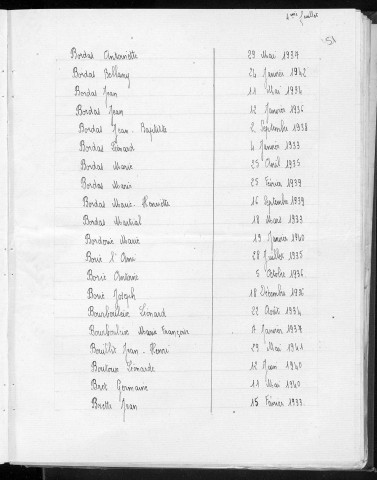 4ème feuillet
51
Bordas Antoinette 29 Mai 1937
Bordas Bellamy 24 Janvier 1942
Bordas Jean 11 Mai 1934
Bordas Jean 12 Janvier 1936
Bordas Jean-Baptiste 2 Septembre 1938
Bordas Léonard 4 Janvier 1933
Bordas Marie 25 Avril 1935
Bordas Marie 25 Février 1939
Bordas Marie-Henriette 16 Septembre 1939
Bordas Martial 18 Mars 1933
Borderie Marie 19 Janvier 1940
Borie 28 Juillet 1935
Borie Antoine 5 Octobre 1936
Borie Joseph 18 Décembre 1936
Bourbouloux Léonard 22 Août 1934
Bourbouloux Marie Françoise Janvier 1937
Jean-Henri 29 Mai 1941
Léonarde 12 Juin 1940
Bret Germaine 11 Mai 1940
Briette Jean 15 Février 1933